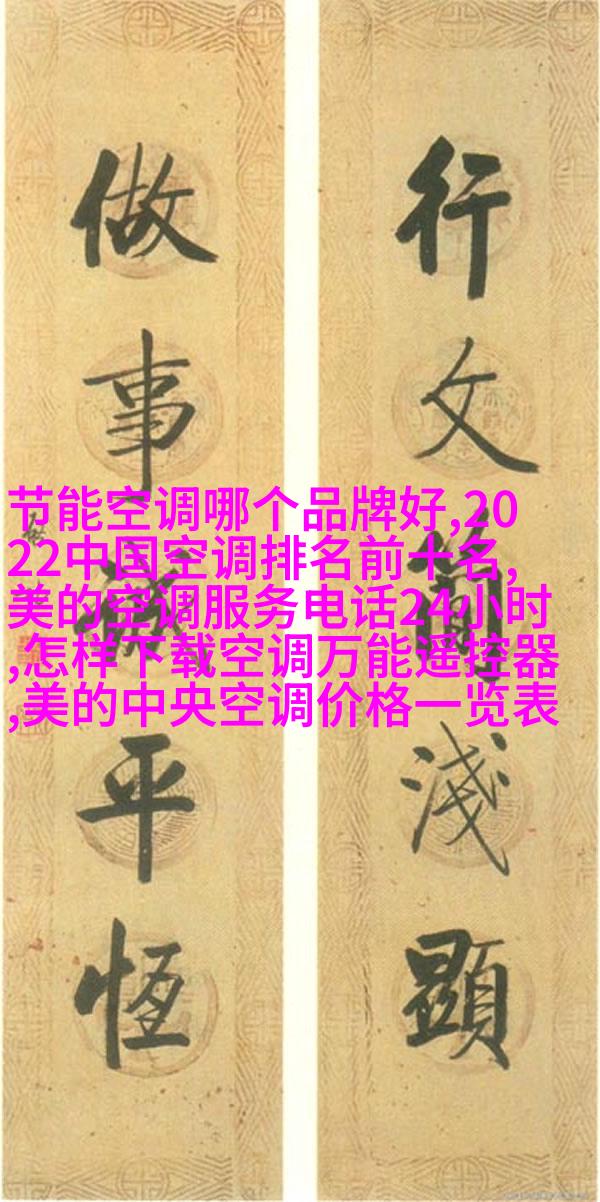 行文簡淺顯
做事誠平恆
节能空调哪个品牌好,20
22中国空调排名前十名,
美的空调服务电话24小时
,怎样下载空调万能遥控器
,美的中央空调价格一览表